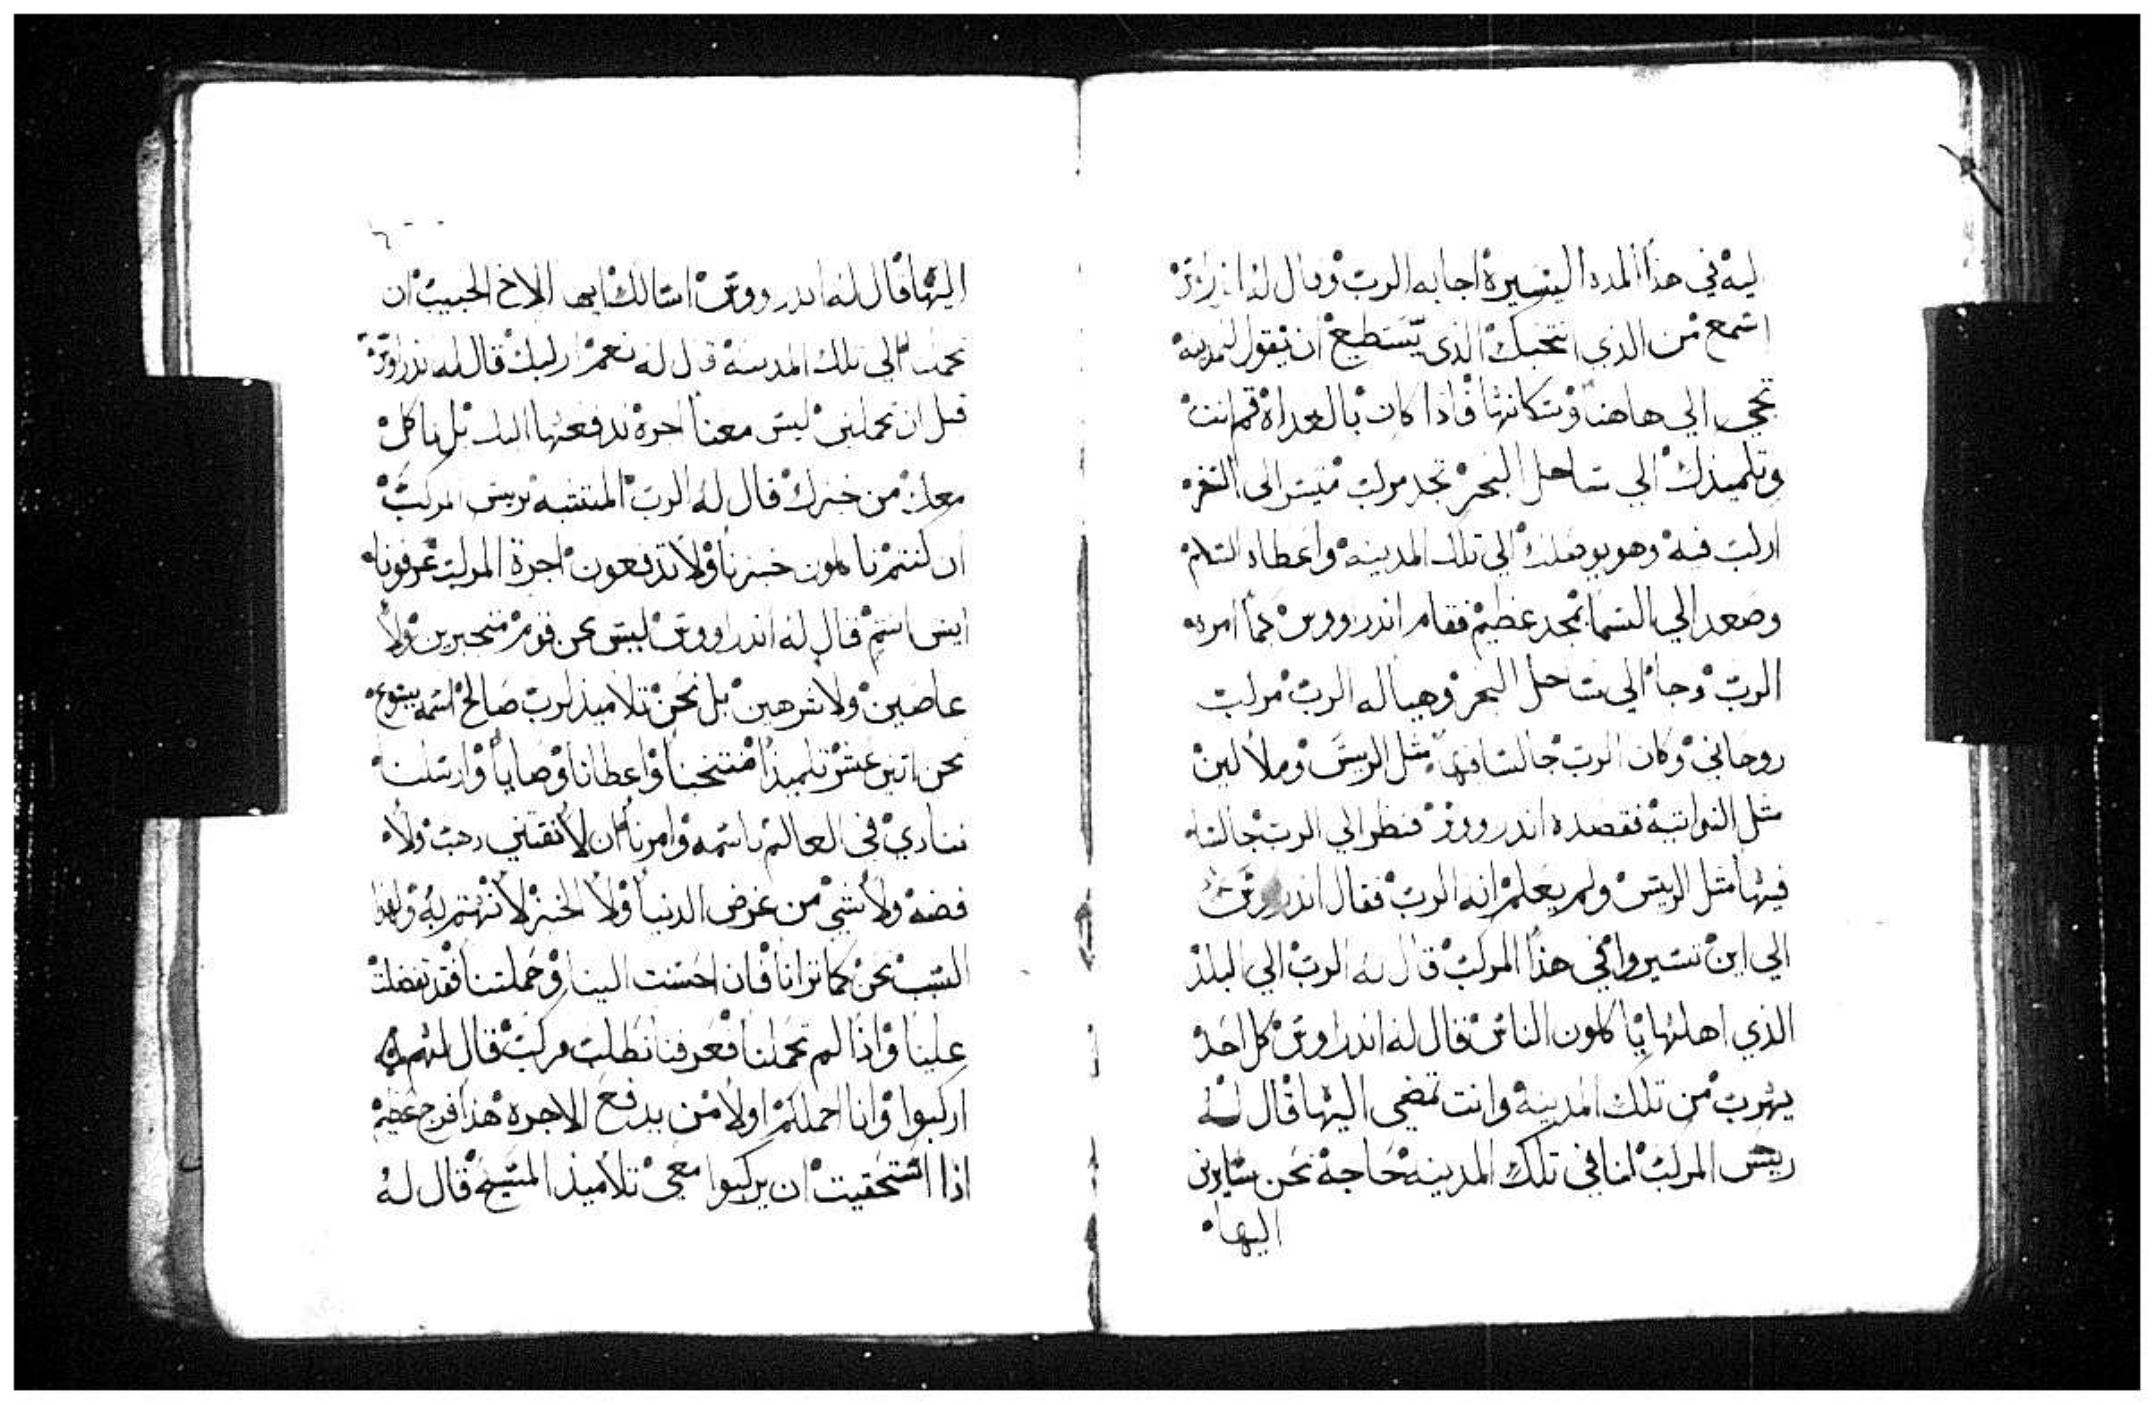 ليه في هذا المده اليسيره اجابه الرب وقال له
اسمع من الذي انتخبك الذي يستطيع ان يقول لمدينه
تجي الي هاهنا وسكانها فاذا كان بالغداه قم انت
وتلميذك الي ساحل البحر تجد مركب
اركب فيه وهو يوصلك الي تلك المدينه واعطاه السلام
وصعد الي السما بمجد عظيم فقام اندراووس كما امره
الرب وجا الي ساحل البحر وهيا له الرب مركب
روحاني وكان الرب جالسا فيها مثل الريس وملاكين
مثل النواتيه فقصده اندرووس فنظر الي الرب جالسا
فيها مثل الريس ولم يعلم انه الرب فقال اندرووس
الي اين تسيروا في هذا المركب قال له الرب الي البلد
الذي اهلها ياكلون الناس فقال له اندراوس كل احد
يهرب من تلك المدينه وانت تمضي اليها قال له
ريس المركب لنا في تلك المدينه حاجه نحن سايرين
اليها
اليها قال له اندرووس اسالك ايها الاخ الحبيب ان
تحملنا الي تلك المدينه قال له نعم اركب قال له اندراوس
قبل ان تحملني ليس معنا اجره ندفعها اليك بل ناكل
معك من خبزك قال له الرب المتشبه بريس المركب
ان كنتم تاكلون خبزنا ولا تدفعون اجرة المركب عرفونا
ايس اسم قال له اندراووس ليس نحن قوم متجبرين ولا
عاصين ولا شرهين بل نحن تلاميذ لرب صالح اسمه يسوع
نحن اتنين عشر تلميذا منتخبنا واعطانا وصايا وارسلنا
ننادي في العالم باسمه وامرنا ان لا نقتني دهب ولا
فضه ولا شي من عرض الدنيا ولا الخبز لا نهتم به ولهذا
السبب نحن كما ترانا فان احسنت الينا وحملتنا فقد تفضلت
علينا واذا لم تحملنا فعرفنا نطلب مركب قال لهم
اركبوا وانا احملكم اولا من يدفع الاجره هذا فرح عظيم
اذا استحقيت ان يركبوا معي تلاميذ المسيح قال له